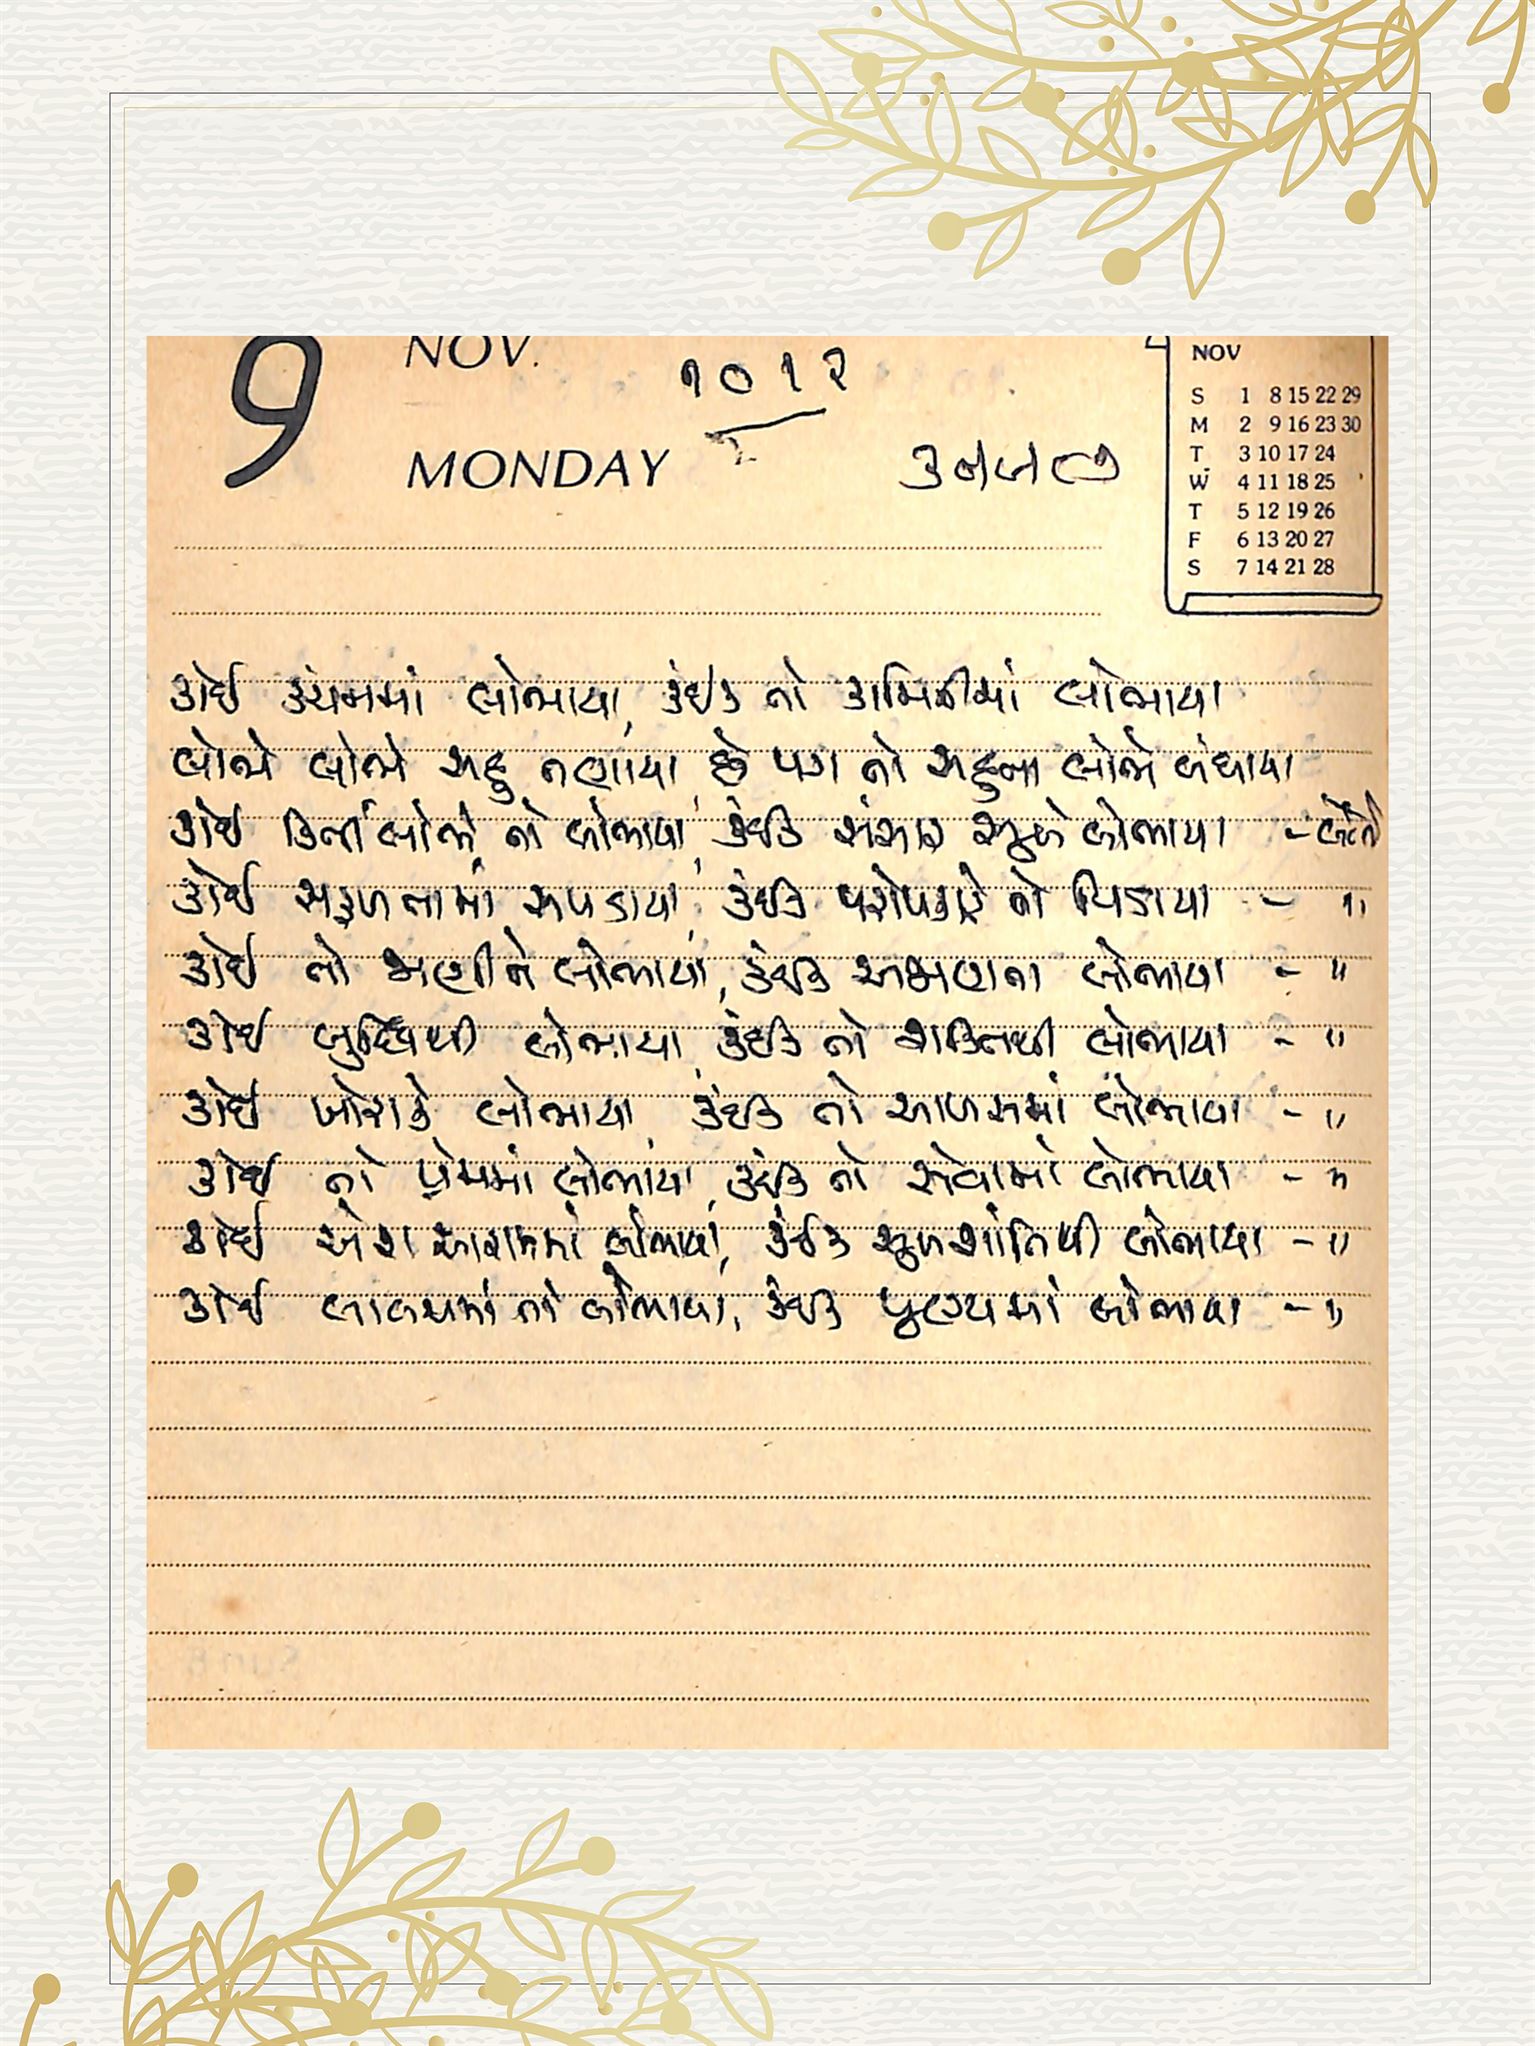 9 NOV. ૧૦૧૨
MONDAY
NOV
S 1 8 15 22 29
M 2 9 16 23 30
T 3 10 17 24
W 4 11 18 25
T 5 12 19 26
F 6 13 20 27
S 7 14 21 28
કોઈ કંચનમાં લોભાયા, કંઈક તો કામિનીમાં લોભાયા
લોભે લોભે સહુ તણાયા છે પગ તો સહુના લોભે બંધાયા
કોઈ કિર્તી લોભે તો લોભાયા, કંઈક સંસાર સુખે લોભાયા - લોભે
કોઈ સફળતામાં સપડાયા, કંઈક પરોપકારે તો પિડાયા - "
કોઈ તો ભણીને લોભાયા, કંઈક અભણતા લોભાયા - "
કોઈ બુદ્ધિથી લોભાયા, કંઈક તો શક્તિથી લોભાયા - "
કોઈ ખોરાકે લોભાયા, કંઈક તો આળસમાં લોભાયા - "
કોઈ તો પ્રેમમાં લોભાયા, કંઈક તો સેવામાં લોભાયા - "
કોઈ એશ આરામમાં લોભાયા, કંઈક સુખશાંતિથી લોભાયા - "
કોઈ લાલચમાં તો લોભાયા, કંઈક પુણ્યમાં લોભાયા - "